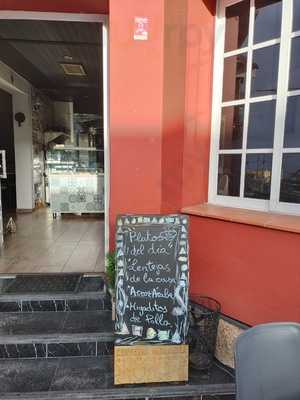 "Platos
del día"
"Lentejas
de la casa
"Arroz Arabe
"Higaditos
de Pollo